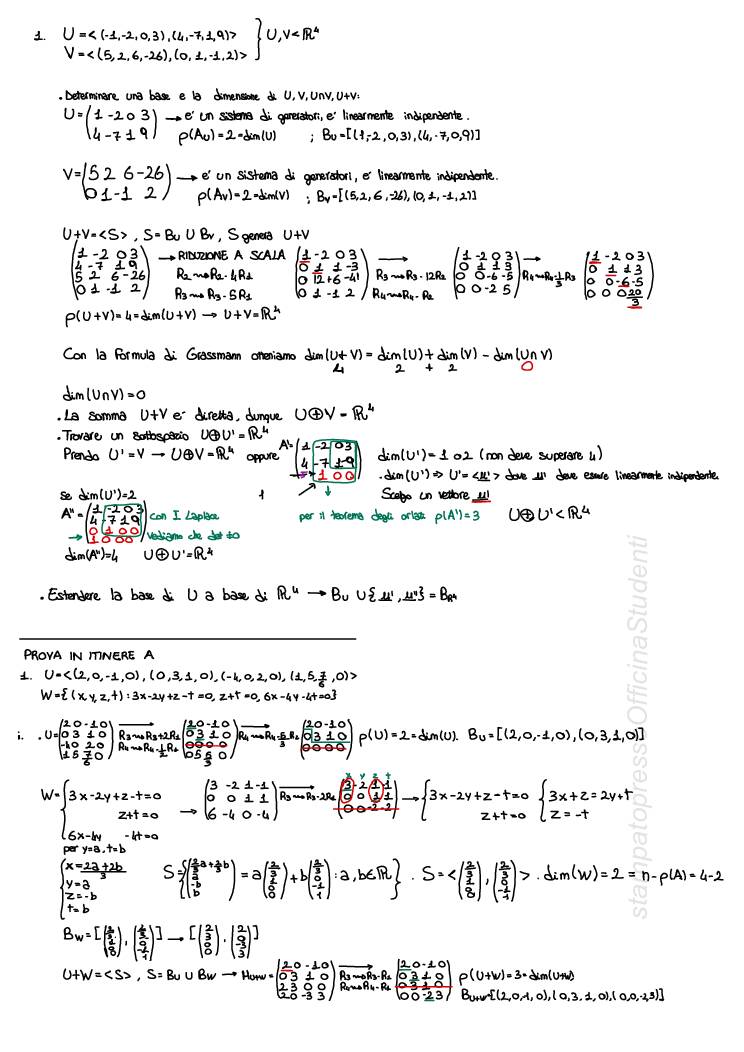 1. U = <(-1,-2,0,3),(4,-7,1,9)> } U,V < ℝ⁴
V = <(5,2,6,-26),(0,1,-1,2)>
. Determinare una base e la dimensione di U, V, U∩V, U+V:
U = (1 -2 0 3 / 4 -7 1 9) → e' un sistema di generatori, e' linearmente indipendente.
ρ(Au) = 2 = dim(U) ; Bu = [(1,-2,0,3),(4,-7,0,9)]
V = (5 2 6 -26 / 0 1 -1 2) → e' un sistema di generatori, e' linearmente indipendente.
ρ(Av) = 2 = dim(V) ; Bv = [(5,2,6,-26),(0,1,-1,2)]
U+V = <S> , S = Bu ∪ Bv , S genera U+V
(1 -2 0 3 / 4 -7 1 9 / 5 2 6 -26 / 0 1 -1 2) → RIDUZIONE A SCALA R2 → R2-4R1 R3 → R3-5R1 (1 -2 0 3 / 0 1 1 -3 / 0 12 +6 -41 / 0 1 -1 2) → R3 → R3-12R2 R4 → R4-R2 (1 -2 0 3 / 0 1 1 3 / 0 0 -6 -5 / 0 0 -2 5) → R4 → R4-1/3 R3 → (1 -2 0 3 / 0 1 1 3 / 0 0 -6 -5 / 0 0 0 20/3)
ρ(U+V) = 4 = dim(U+V) → U+V = ℝ⁴
Con la Formula di Grassmann otteniamo dim(U+V) = dim(U) + dim(V) - dim(U∩V)
4 2 + 2 0
dim(U∩V) = 0
. La somma U+V e' diretta, dunque U⊕V = ℝ⁴
. Trovare un sottospazio U⊕U' = ℝ⁴
Prendo U' = V → U⊕V = ℝ⁴ oppure A' = (1 -2 0 3 / 4 -7 1 9 / 1 0 0) dim(U') = 1 o 2 (non deve superare 4)
. dim(U') ⇒ U' = <u'> dove u' deve essere linearmente indipendente.
se dim(U') = 2 1 Scelgo un vettore u'
A'' = (1 -2 0 3 / 4 -7 1 9 / 0 1 0 0 / 1 0 0 0) con I Laplace vediamo che det ≠ 0 per il teorema degli orlati ρ(A') = 3 U⊕U' < ℝ⁴
dim(A'') = 4 U⊕U' = ℝ⁴
. Estendere la base di U a base di ℝ⁴ → Bu ∪ {u', u''} = Bℝ⁴
PROVA IN ITINERE A
1. U = <(2,0,-1,0),(0,3,1,0),(-4,0,2,0),(1,5,7/6,0)>
W = {(x,y,z,t) : 3x-2y+z-t=0, z+t=0, 6x-4y-4t=0}
i. . U = (2 0 -1 0 / 0 3 1 0 / -4 0 2 0 / 1 5 7/6 0) R3 → R3+2R1 R4 → R4-1/2 R1 (2 0 -1 0 / 0 3 1 0 / 0 0 0 0 / 0 5 5/3 0) R4 → R4-5/3 R2 (2 0 -1 0 / 0 3 1 0 / 0 0 0 0) ρ(U) = 2 = dim(U). Bu = [(2,0,-1,0),(0,3,1,0)]
W = { 3x-2y+z-t=0 / z+t=0 / 6x-4y -4t=0 → (3 -2 1 -1 / 0 0 1 1 / 6 -4 0 -4) R3 → R3-2R1 x y z t (3 -2 1 -1 / 0 0 1 1 / 0 0 -2 -2) → { 3x-2y+z-t=0 / z+t=0 { 3x+z = 2y+t / z = -t
per y=a, t=b
{ x = 2a+2b/3 / y = a / z = -b / t = b
S = {(2/3 a + 2/3 b / a / -b / b) = a(2/3 / 1 / 0 / 0) + b(2/3 / 0 / -1 / 1) : a,b∈ℝ} . S = <(2/3 / 1 / 0 / 0), (2/3 / 0 / -1 / 1)> . dim(W) = 2 = n-ρ(A) = 4-2
Bw = [(2/3 / 1 / 0 / 0), (2/3 / 0 / -1 / 1)] → [(2 / 3 / 0 / 0), (2 / 0 / -3 / 3)]
U+W = <S> , S = Bu ∪ Bw → Hu+w = (2 0 -1 0 / 0 3 1 0 / 2 3 0 0 / 2 0 -3 3) R3 → R3-R1 R4 → R4-R1 (2 0 -1 0 / 0 3 1 0 / 0 3 1 0 / 0 0 -2 3) ρ(U+W) = 3 = dim(U+W)
Bu+w = [(2,0,-1,0),(0,3,1,0),(0,0,-2,3)]
stampatopressoOfficinaStudenti